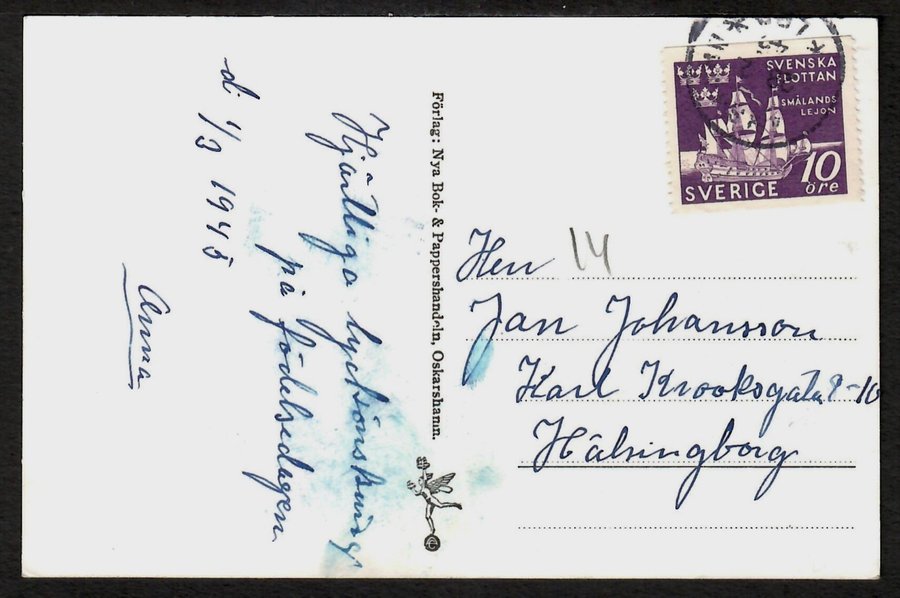 d. 1/3 1945
Hjärtliga lyckönskning
på födelsedagen
Anna
Förlag: Nya Bok- & Pappershandeln, Oskarshamn.
SVENSKA
FLOTTAN
SMÅLANDS
LEJON
10
öre
SVERIGE
Herr 14
Jan Johansson
Karl Krooksgata 8-10
Hälsingborg